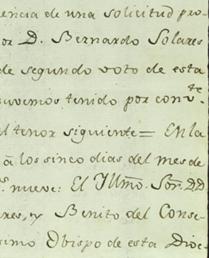 encia de una solicitud pro-
or D. Bernardo Solares
de segundo voto de esta
uvemos tenido por convte
el tenor siguiente = En la
a los sinco dias del mes de
s. nueve: El Yllmo. Sor. DD
res, y Benito del Conse-
simo Obispo de esta Dioc-